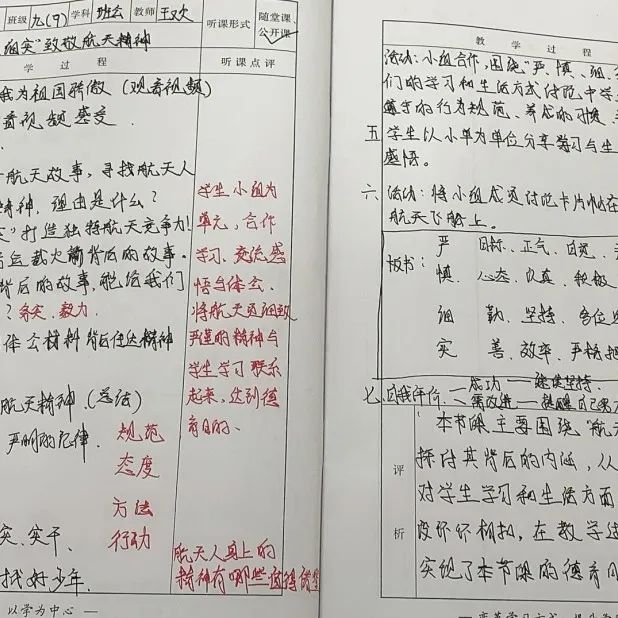 班级 九(9) 学科 班会 教师 王欢 听课形式 随堂课、公开课✓
细实"致敬航天精神
学 过 程 听课点评
我为祖国骄傲(观音视频)
音视频感受
航天故事,寻找航天人
精神,理由是什么?
"打造独特航天竞争力!
运载火箭背后的故事。
背后的故事,能给我们
?务实、毅力
体会材料背后传达精神
航天精神(总结)
严明的纪律、
规范
态度
方法
行动
实、实干、
找好少年.
学生小组为
单元,合作
学习,交流感
悟与体会.
将航天员细致
严谨的精神与
学生学习联系
起来,达到德
育目的.
航天人身上的
精神有哪些值得
以学为中心 —
教 学 过 程
活动:小组合作,围绕"严、慎、细、
们的学习和生活方式讨论中学
的行为规范、养成的习惯、
五 学生以小单为单位分享学习与生
感悟。
六 活动:将小组成员讨论卡片帖在
航天飞船上.
板书:
严 目标、正气、自觉、
慎 心态、认真、积极
细 勤、坚持、各位
实 善、效率、严格把
七、自我评价:— 成功 —— 继续坚持
— 需改进 — 提醒自己
评析
本节课主要围绕"航
探讨其背后的内涵,从
对学生学习和生活方面
在教学过
实现了本节课的德育目